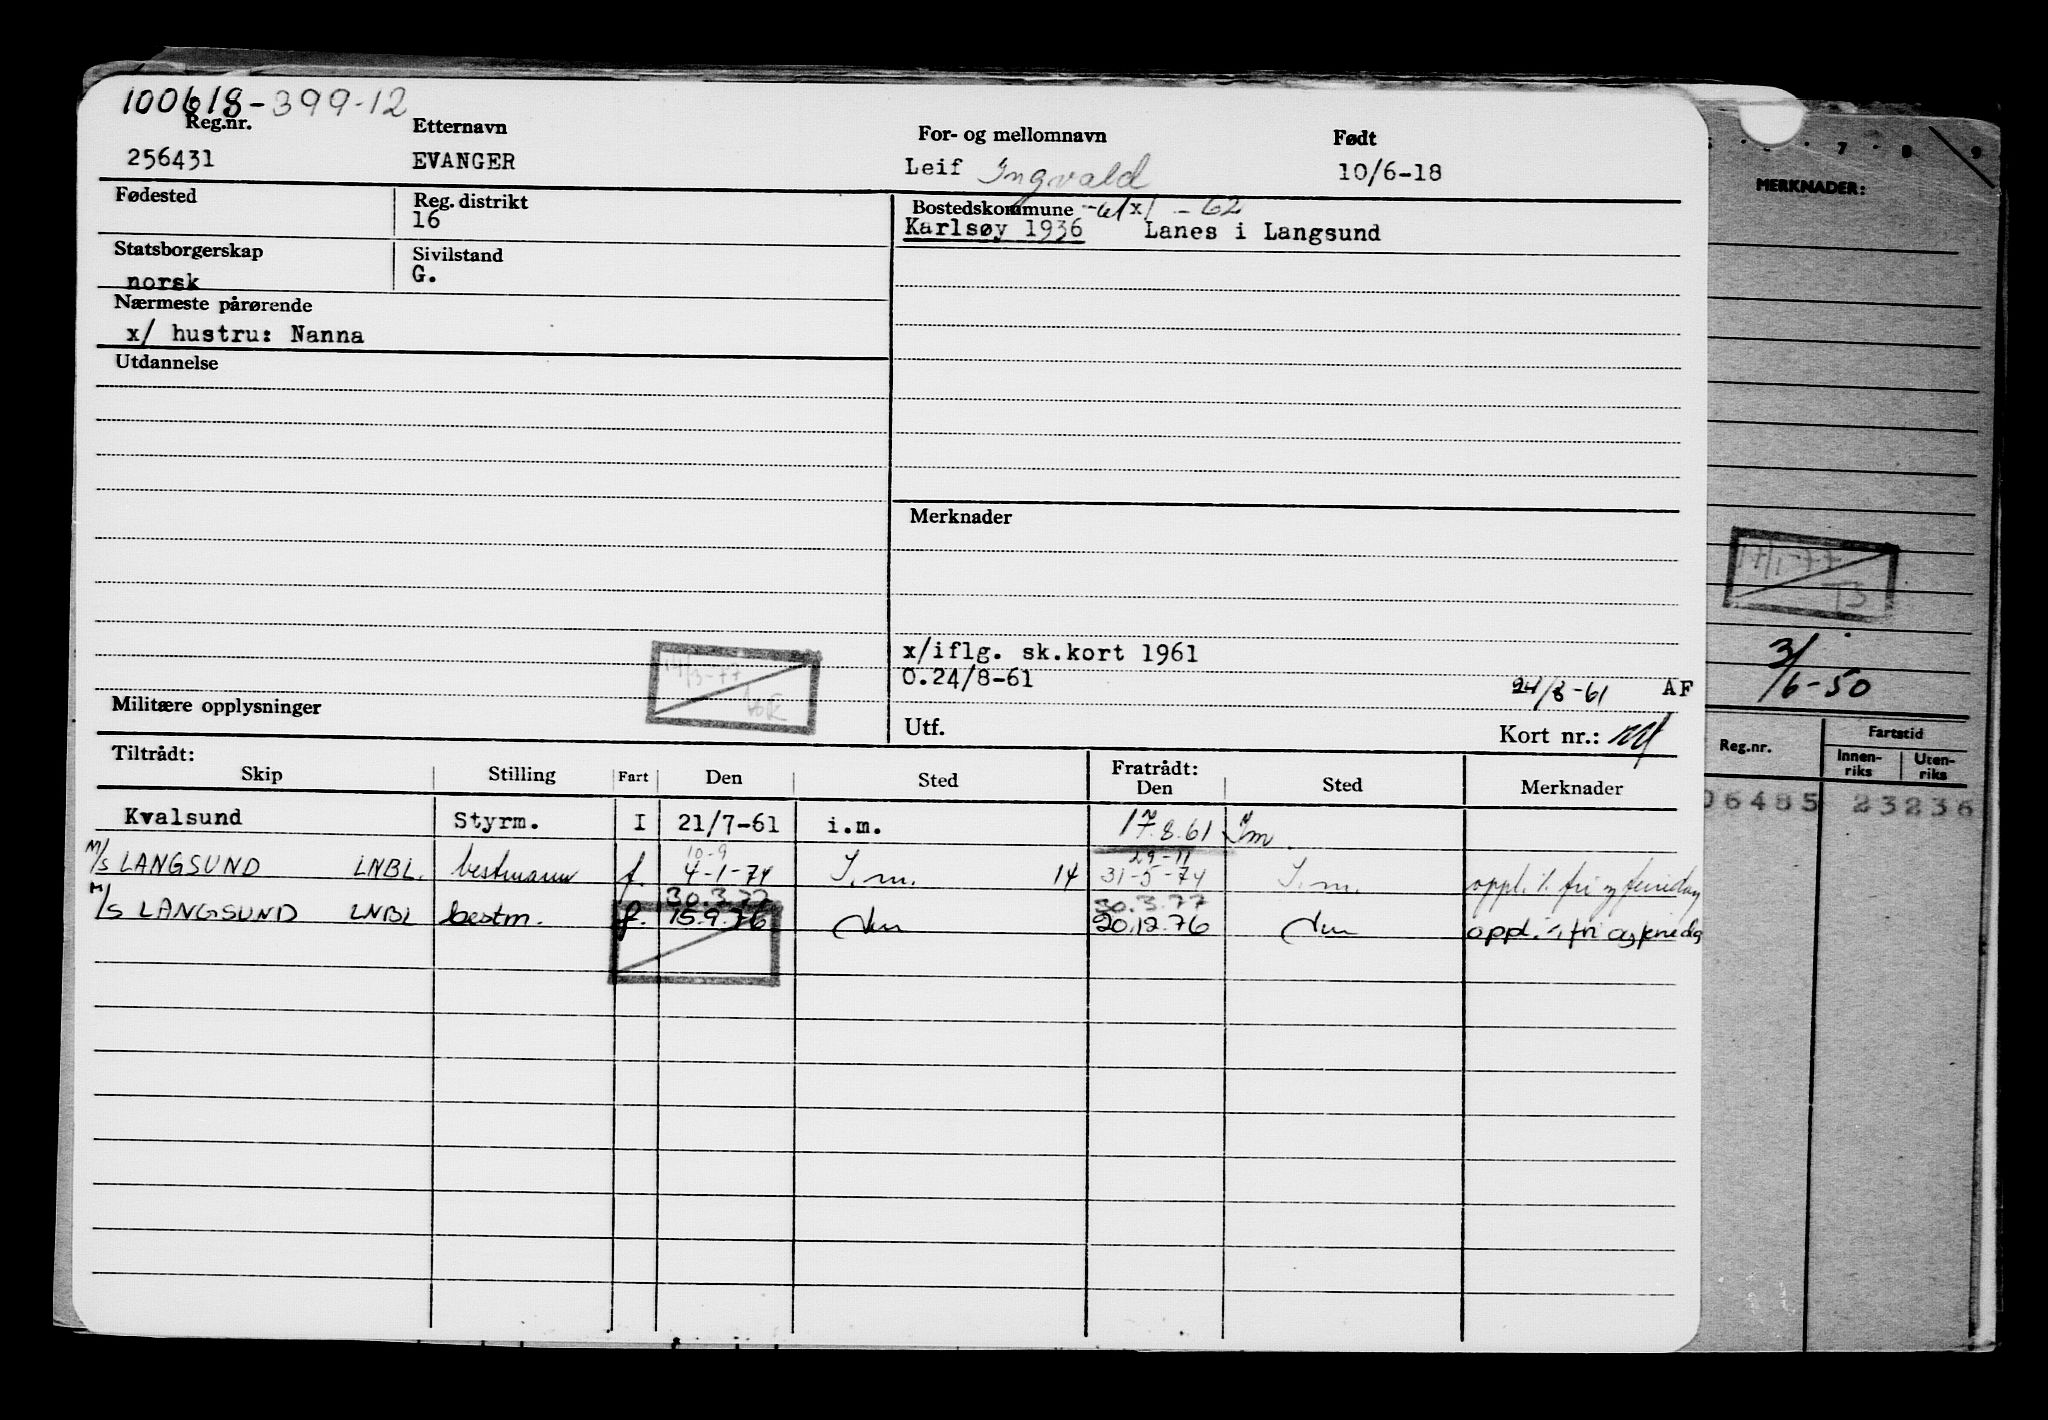 100618-399-12
Reg.nr. Etternavn For- og mellomnavn Født
256431 EVANGER Leif Ingvald 10/6-18
Fødested Reg. distrikt Bostedskommune -61 x/ -62
16 Karlsøy 1936 Lanes i Langsund
Statsborgerskap Sivilstand
norsk G.
Nærmeste pårørende
x/ hustru: Nanna
Utdannelse
Merknader
x/iflg. sk.kort 1961
0.24/8-61 24/8-61 AF
Militære opplysninger 14/3-77
Utf. Kort nr.:
Tiltrådt: Fratrådt:
Skip Stilling Fart Den Sted Den Sted Merknader
Kvalsund Styrm. I 21/7-61 i.m. 17.8.61 Im.
10-9 29-11
M/S LANGSUND LNBL. bestmann f. 4-1-74 I.m. 14 31-5-74 I.m. oppl. i. fri og feriedag
30.3.77 30.3.77
M/S LANGSUND LNBL bestm. f. 15.9.76 20.12.76 oppl. i. fri og feriedg
7 8 9
MERKNADER:
17/1-77
TS
3/6-50
Reg.nr. Fartstid
Innen-riks Uten-riks
06485 23236